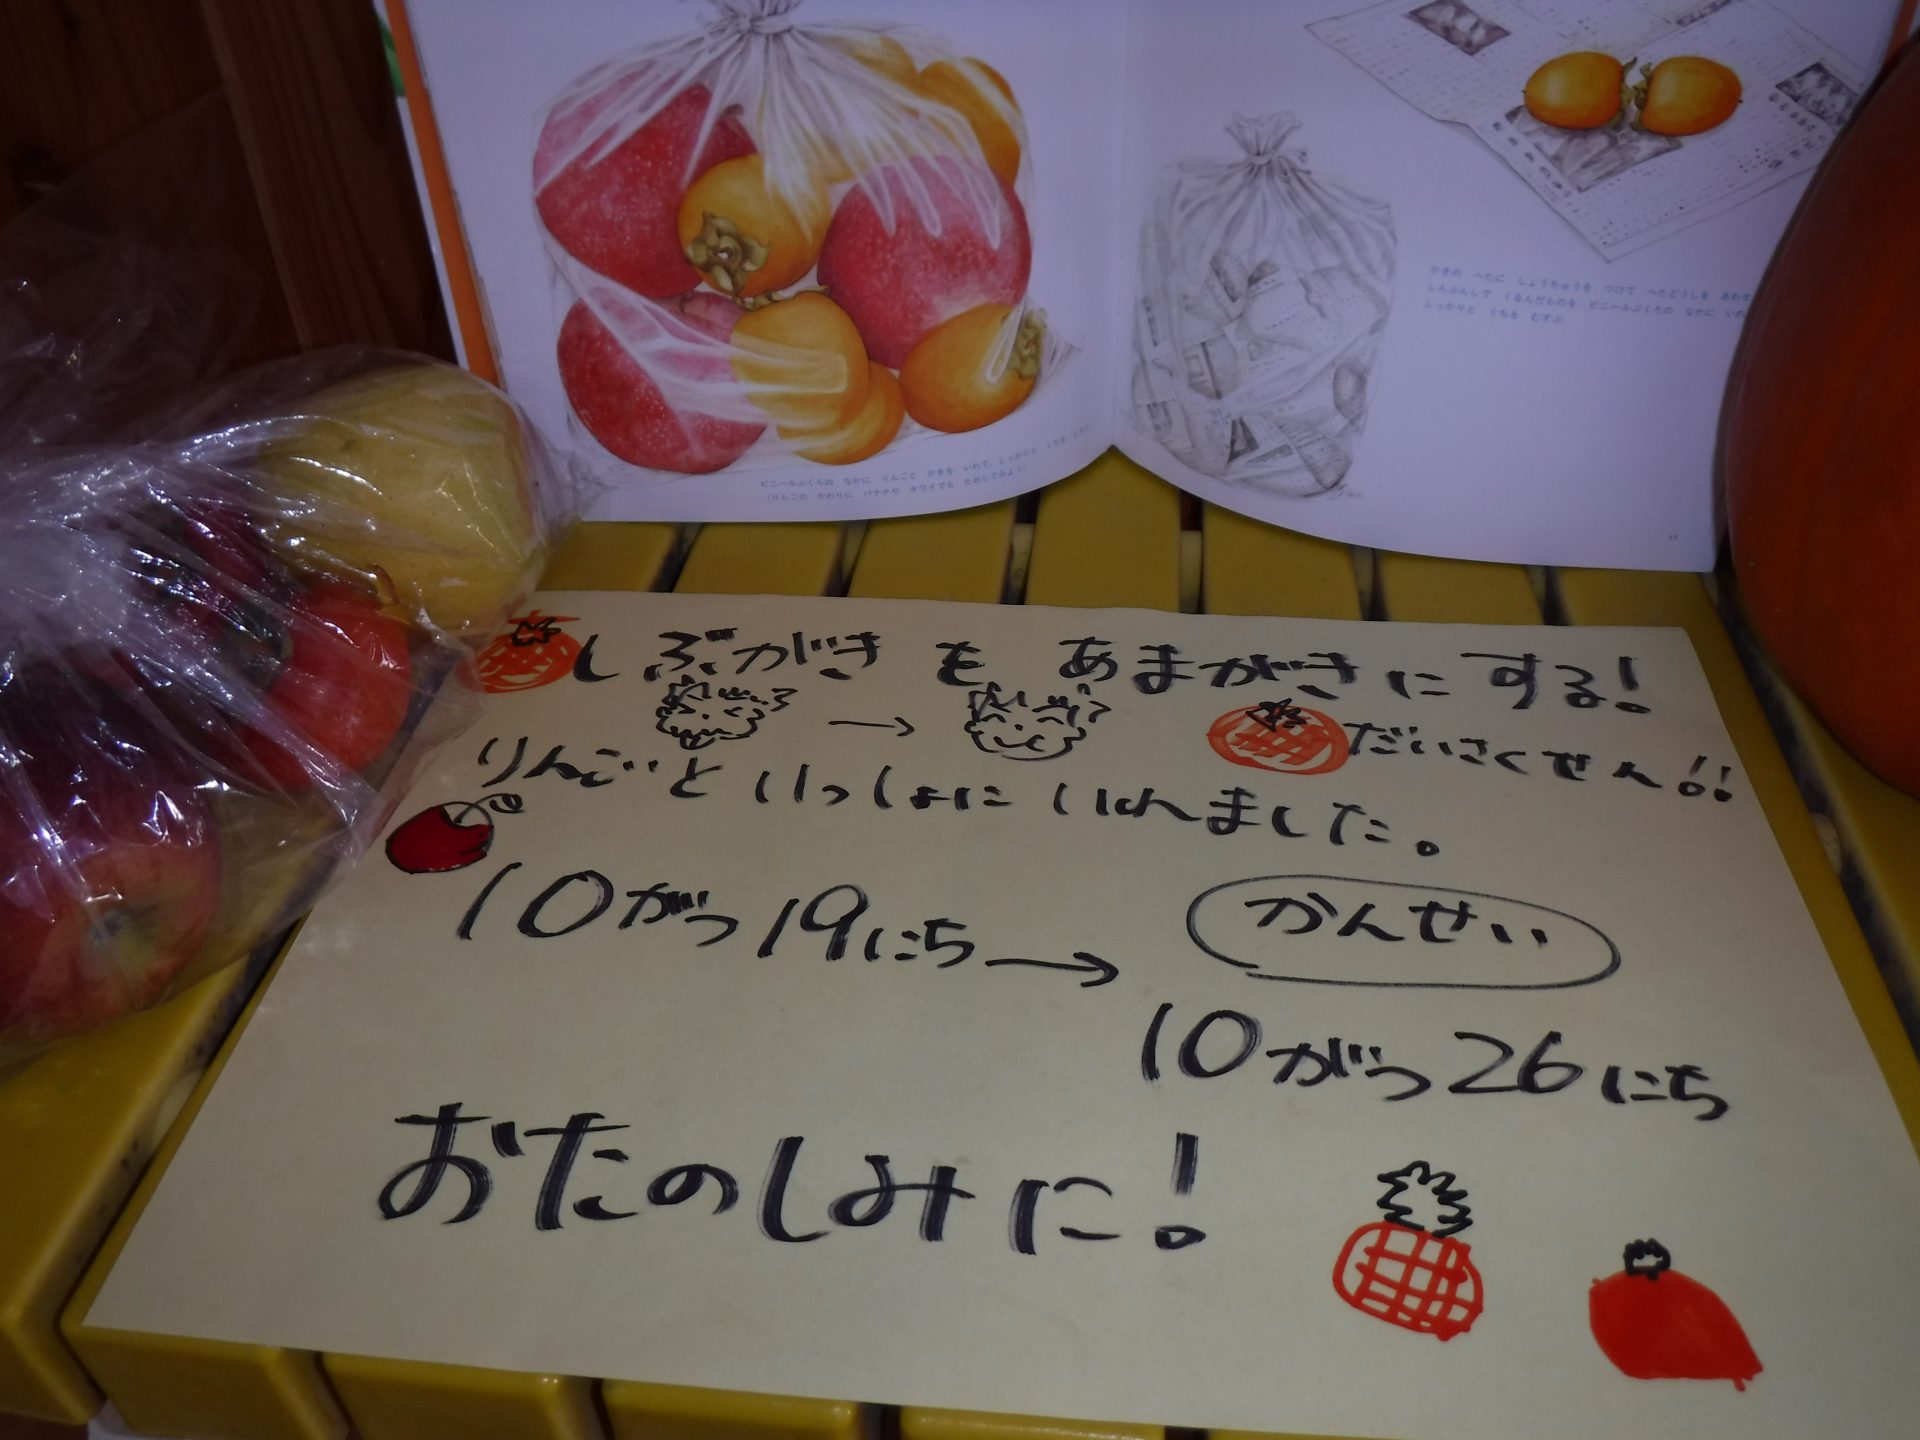 ビニールぶくろの なかに りんごと かきを いれて、しっかりと くちを
(りんごの かわりに バナナや キウイでも ためしてみよう)
かきの へたに しょうちゅうを つけて へたどうしを あわせ
しんぶんしで くるんだものを ビニールぶくろの なかに いれ
しっかりと くちを むすぶ
しぶがき を あまがきに する!
→ だいさくせん!!
りんごと いっしょに いれました。
10がつ19にち→ かんせい
10がつ26にち
おたのしみに!